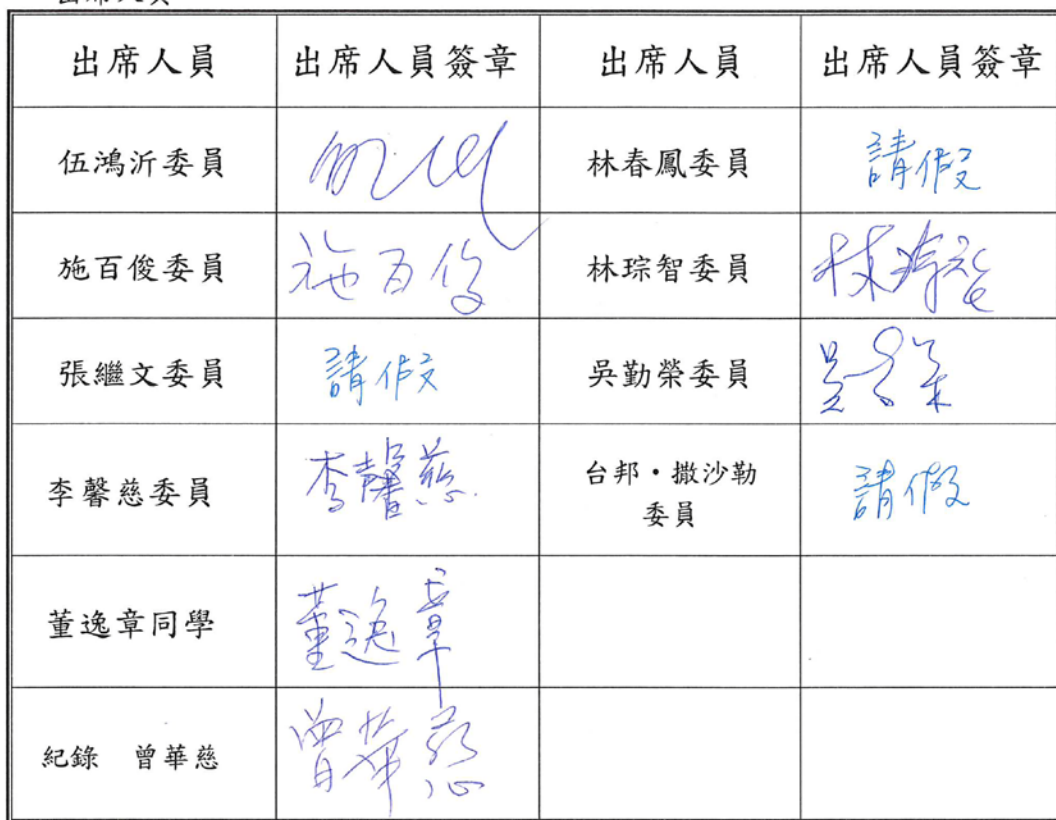 出席人員
出席人員 出席人員簽章 出席人員 出席人員簽章
伍鴻沂委員 林春鳳委員 請假
施百俊委員 施百俊 林琮智委員 林琮智
張繼文委員 請假 吳勤榮委員
李馨慈委員 李馨慈 台邦・撒沙勒
委員 請假
董逸章同學 董逸章
紀錄 曾華慈 曾華慈